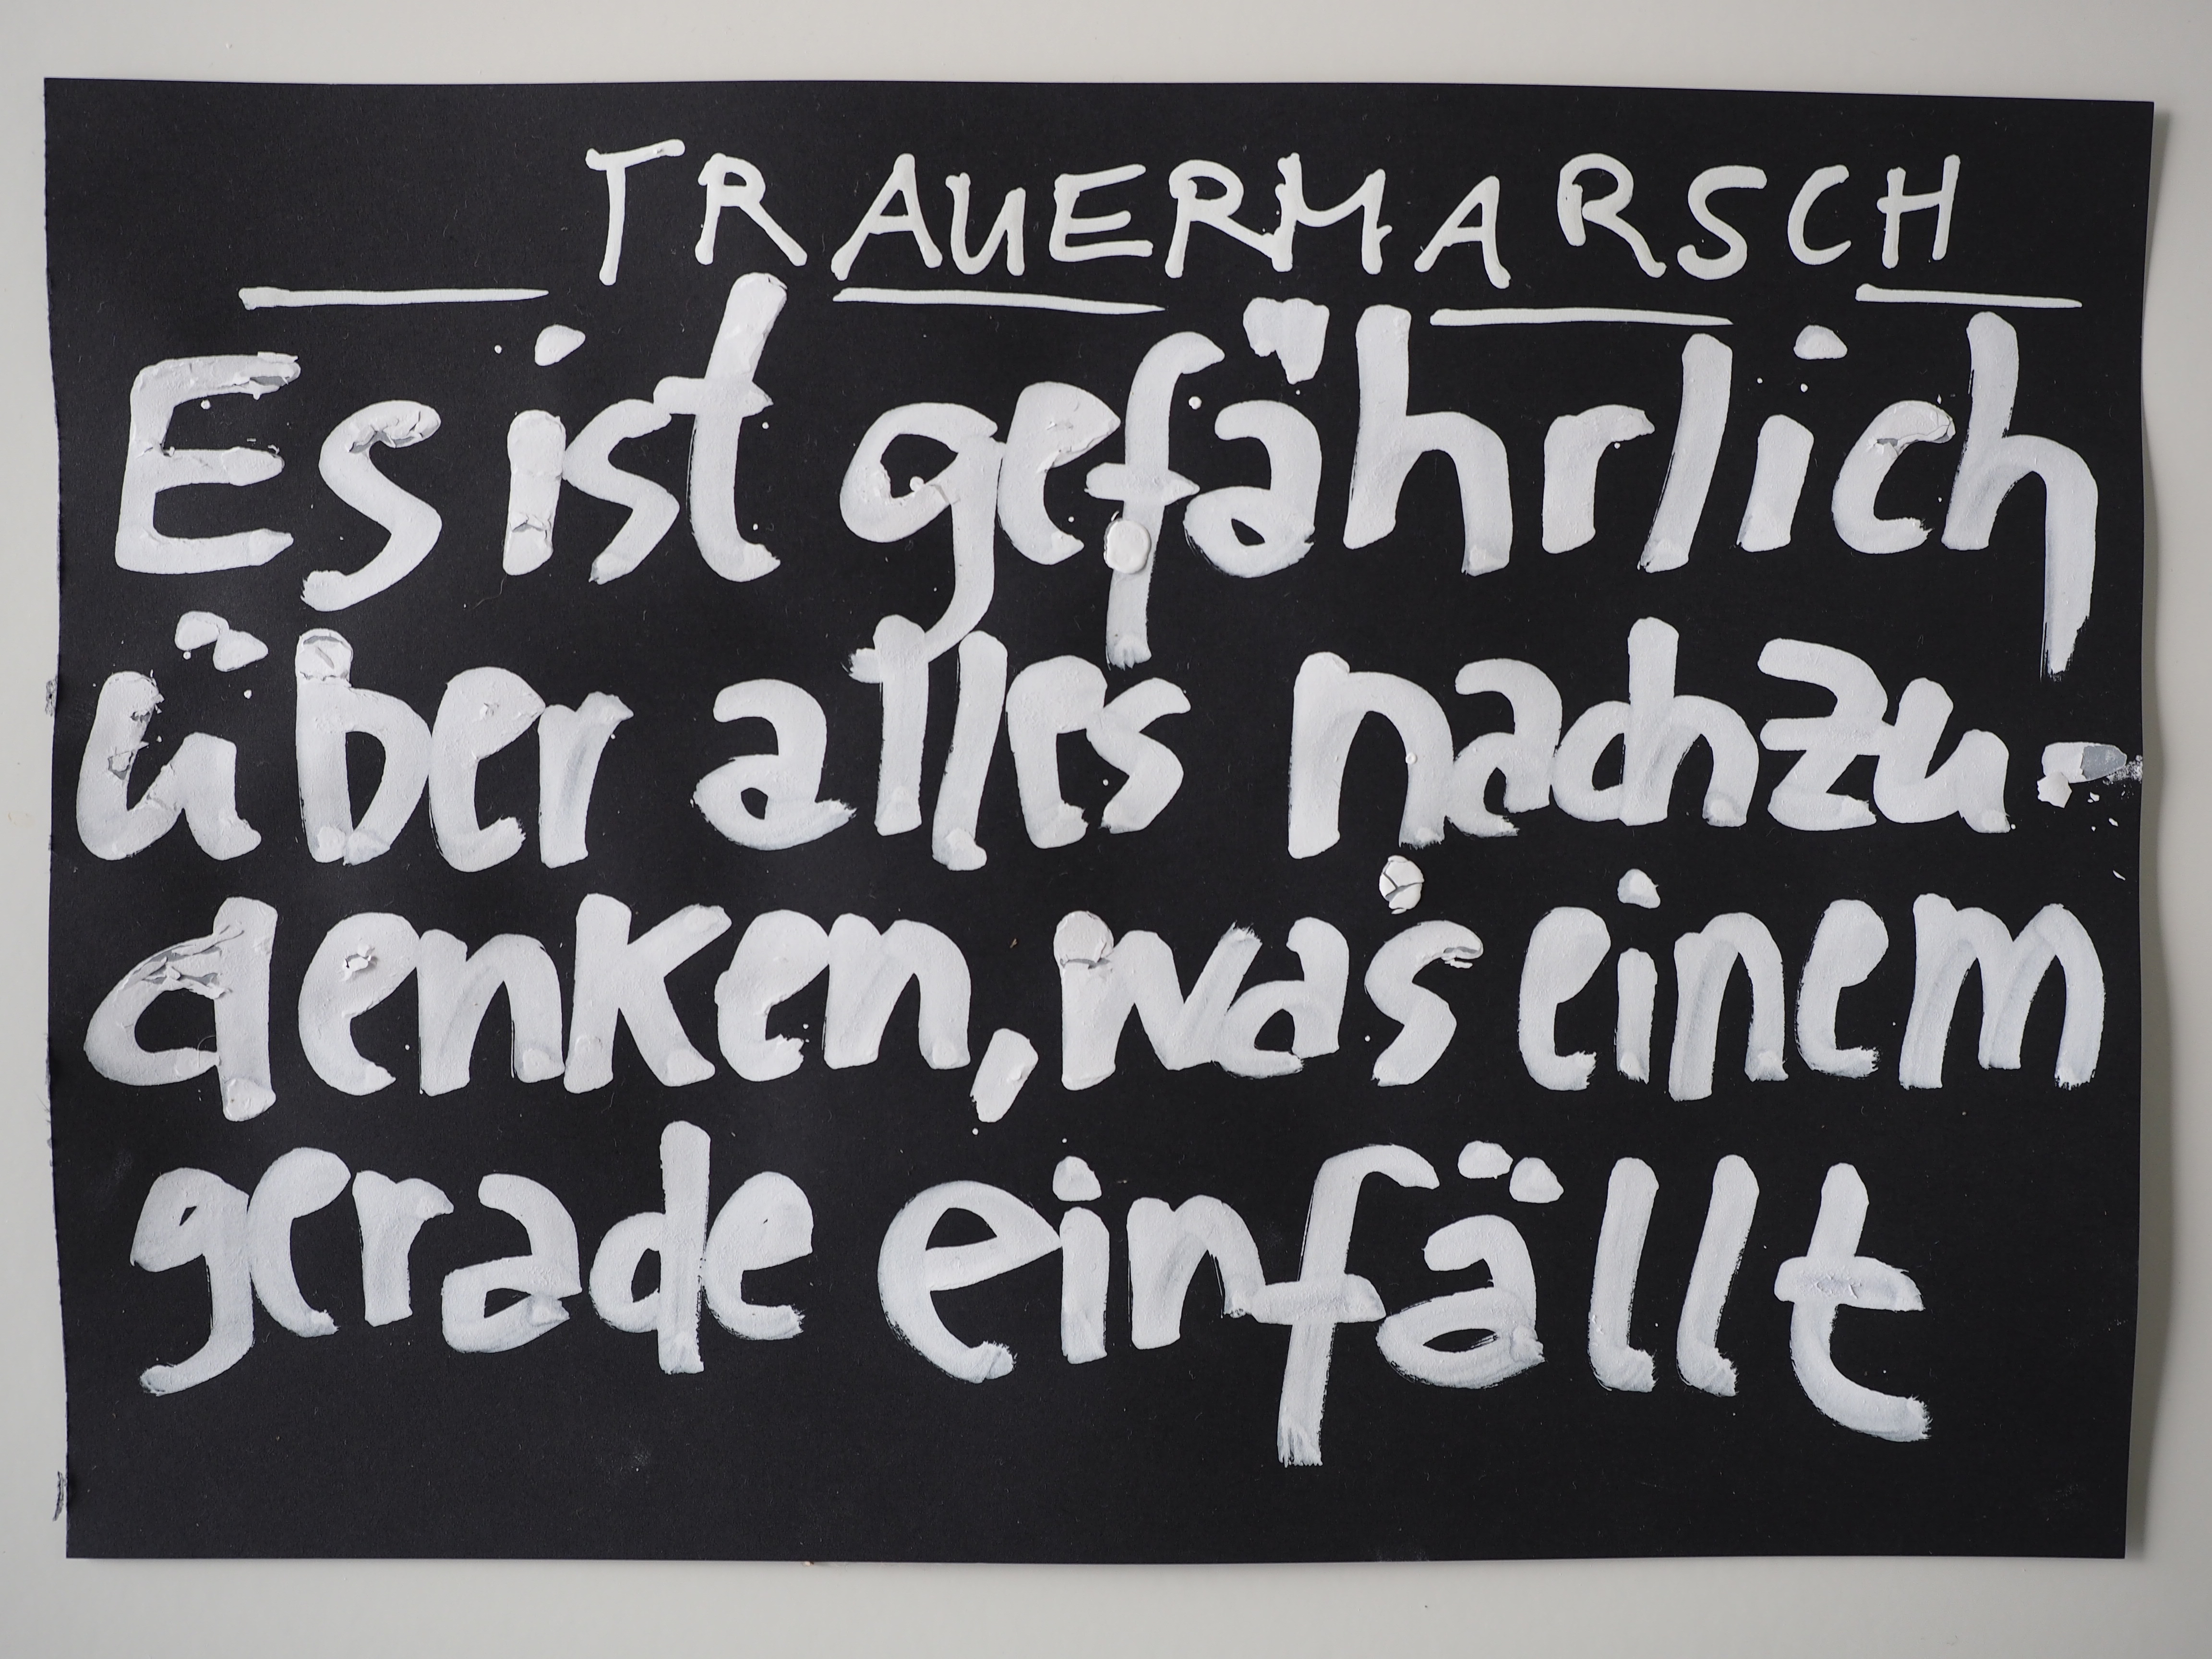 TRAUERMARSCH
Es ist gefährlich
über alles nachzu-
denken, was einem
gerade einfällt